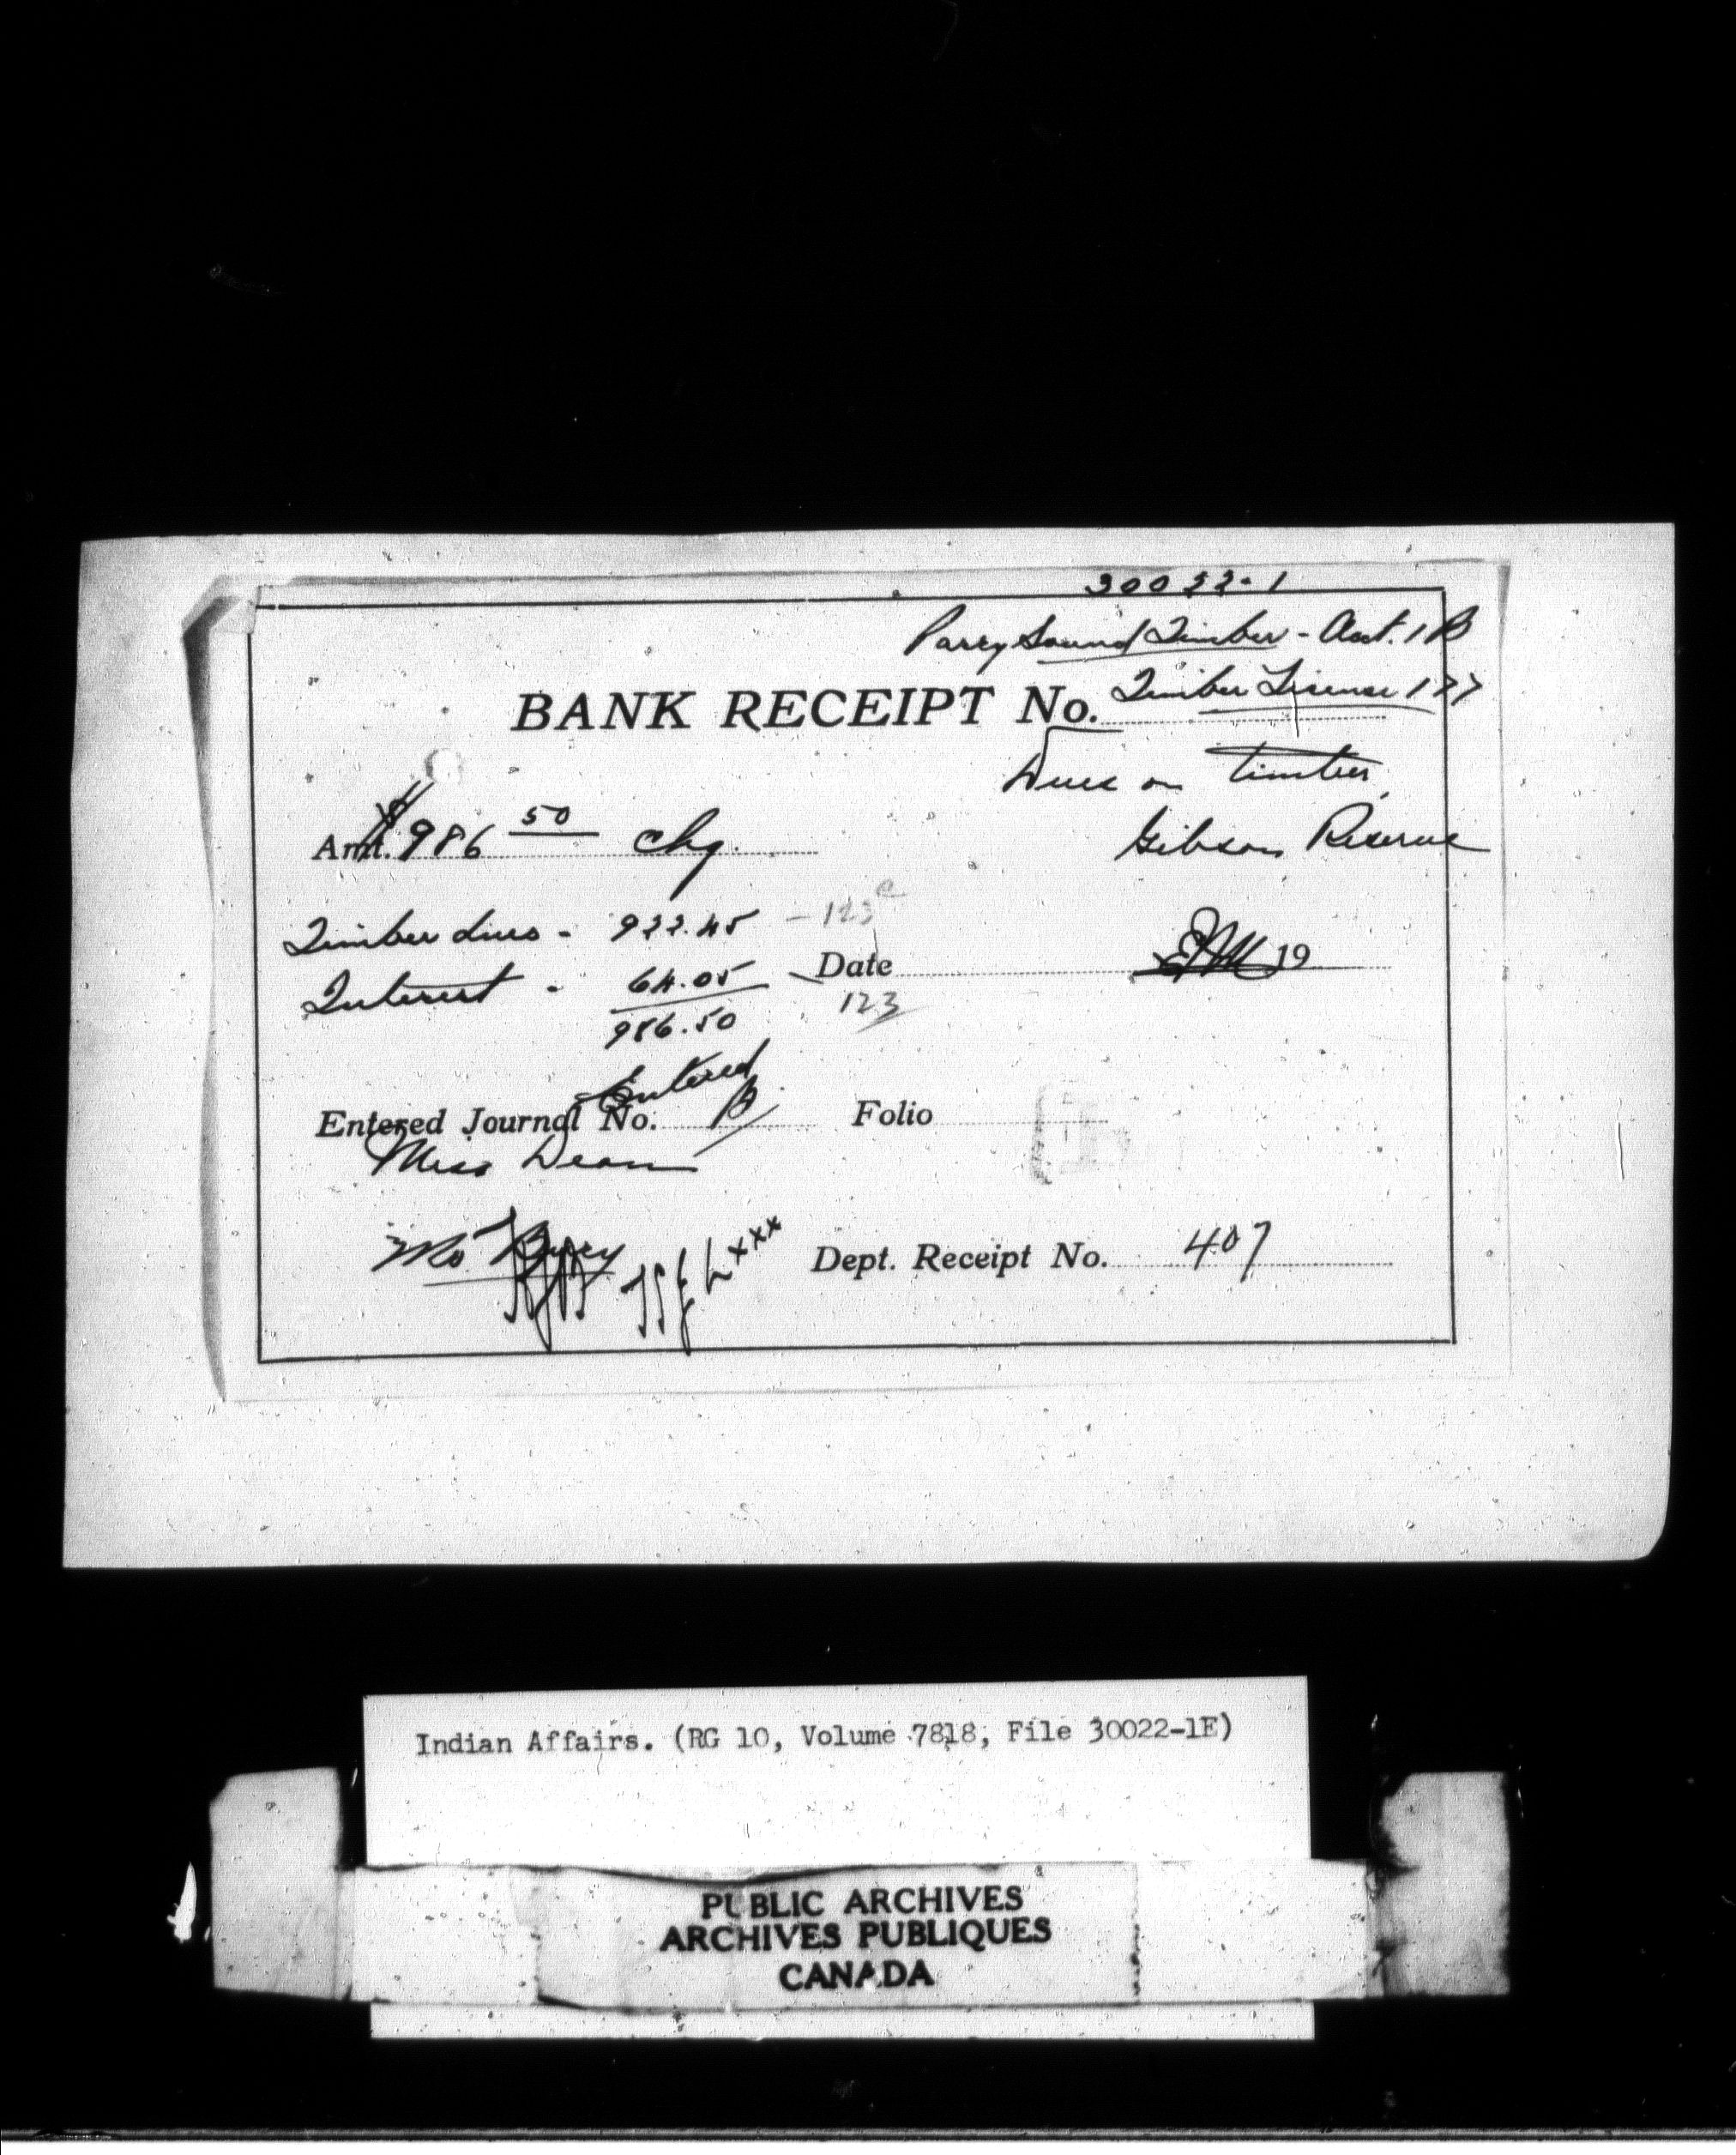 30022-1
Parry Sound Timber - Acct. 1 B
BANK RECEIPT No. Timber License 177
Dues on timber
Gibson Reserve
Amt. $986 50 chq.
Timber dues - 922.45 - 123
Interest - 64.05
Date 19
123
986.50
Entered
Entered Journal No. Folio
Miss Dean
Dept. Receipt No. 407
Indian Affairs. (RG 10, Volume 7818, File 30022-1E)
PUBLIC ARCHIVES
ARCHIVES PUBLIQUES
CANADA